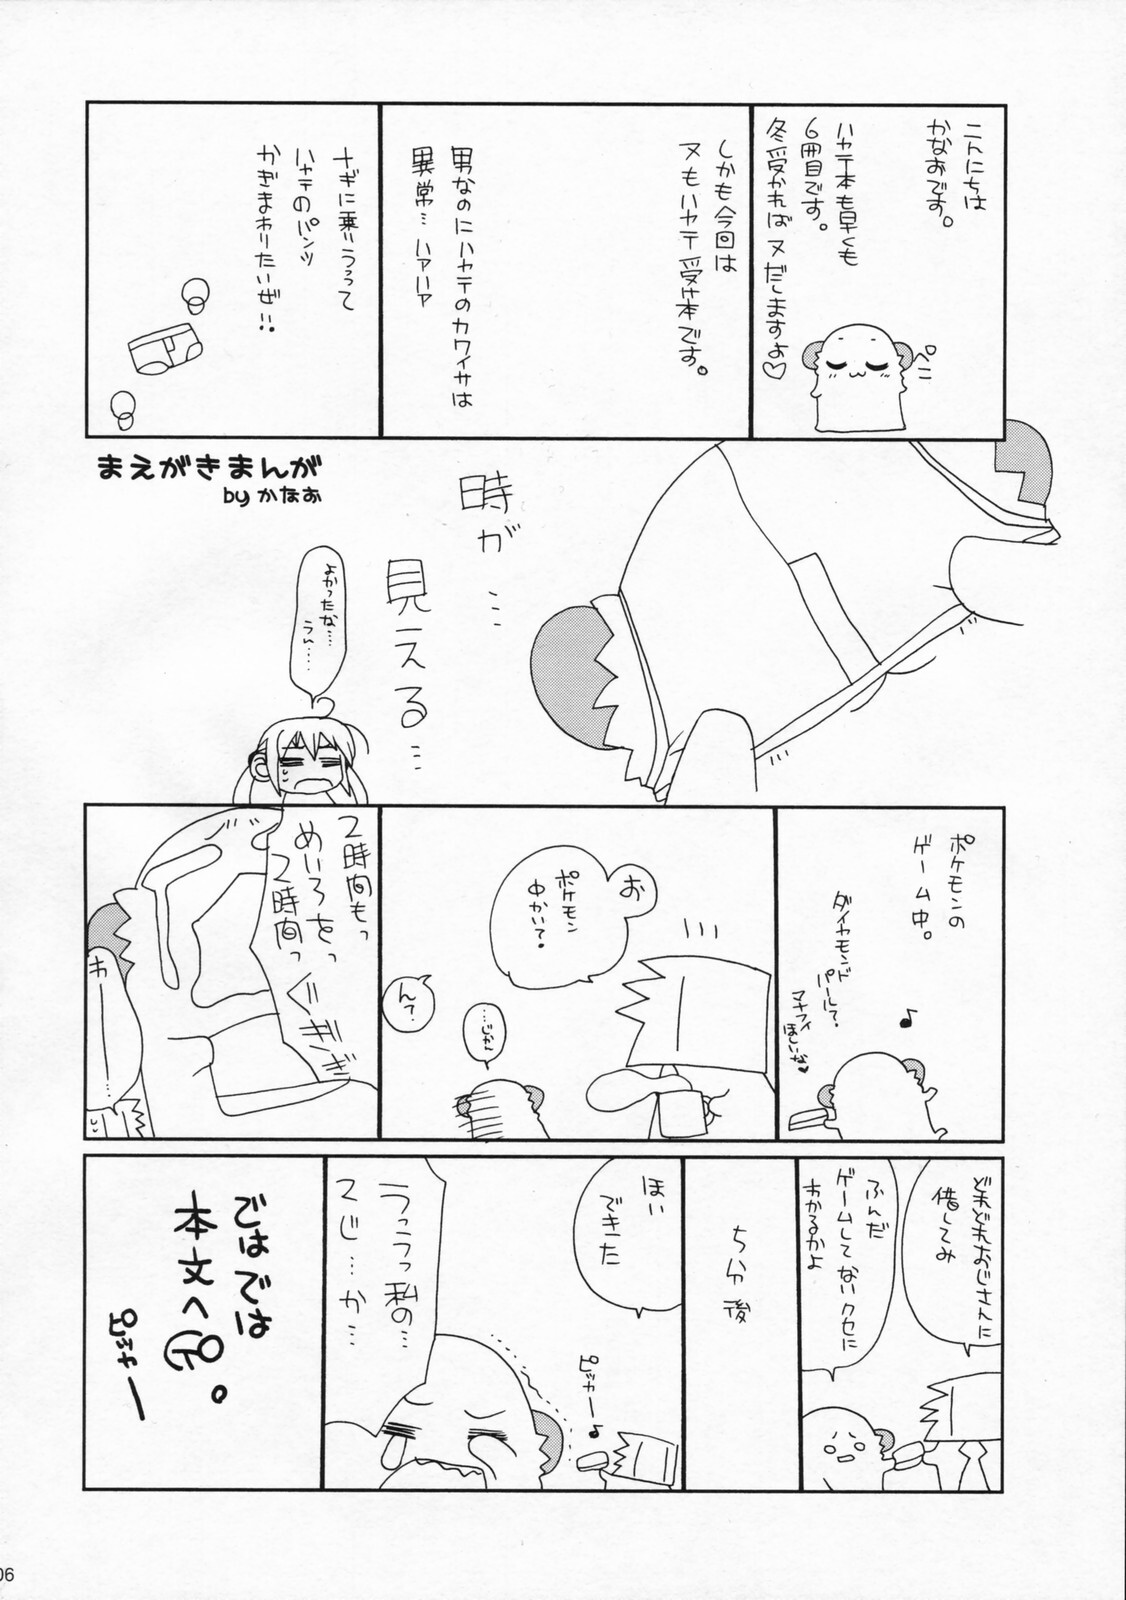 こんにちは
かなおです。
ハヤテ本も早くも
6冊目です。
冬受かればヌだしますよ♡
ペニ
しかも今回は
ヌもハヤテ受け本です。
男なのにハヤテのカワイサは
異常…ハアハア
ナギに乗りうつって
ハヤテのパンツ
かぎまわりたいぜ!!
まえがきまんが
by かなお
時が…
見える…
よかったな…
うん……
ポケモンの
ゲーム中。
ダイヤモンド
パールで、
マナフィ
ほしいな♥
♪
お
ポケモン
中かいて。
…じかん
んで。
2時間もっ
めいろをっ
2時間っ
ぐぎぎぎ
どれどれおじさんに
借してみ
ふんだ
ゲームしてないクセに
わかるかよ
5分後
ほい
できた
ピッカー♪
うっうっ私の…
2じ…か…
ではでは
本文へ
。